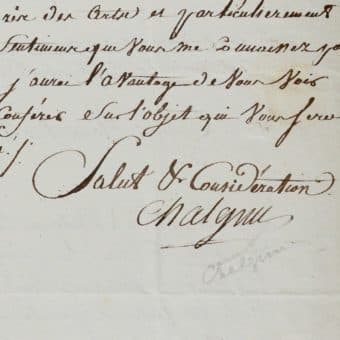 des arts et particulierement
Sentimens que Vous me Connoissez
j'aurai l'avantage de Vous Voir
Conférer Sur l'objet qui Vous fera
Salut & Considération
Chalgrin
Chalgrin